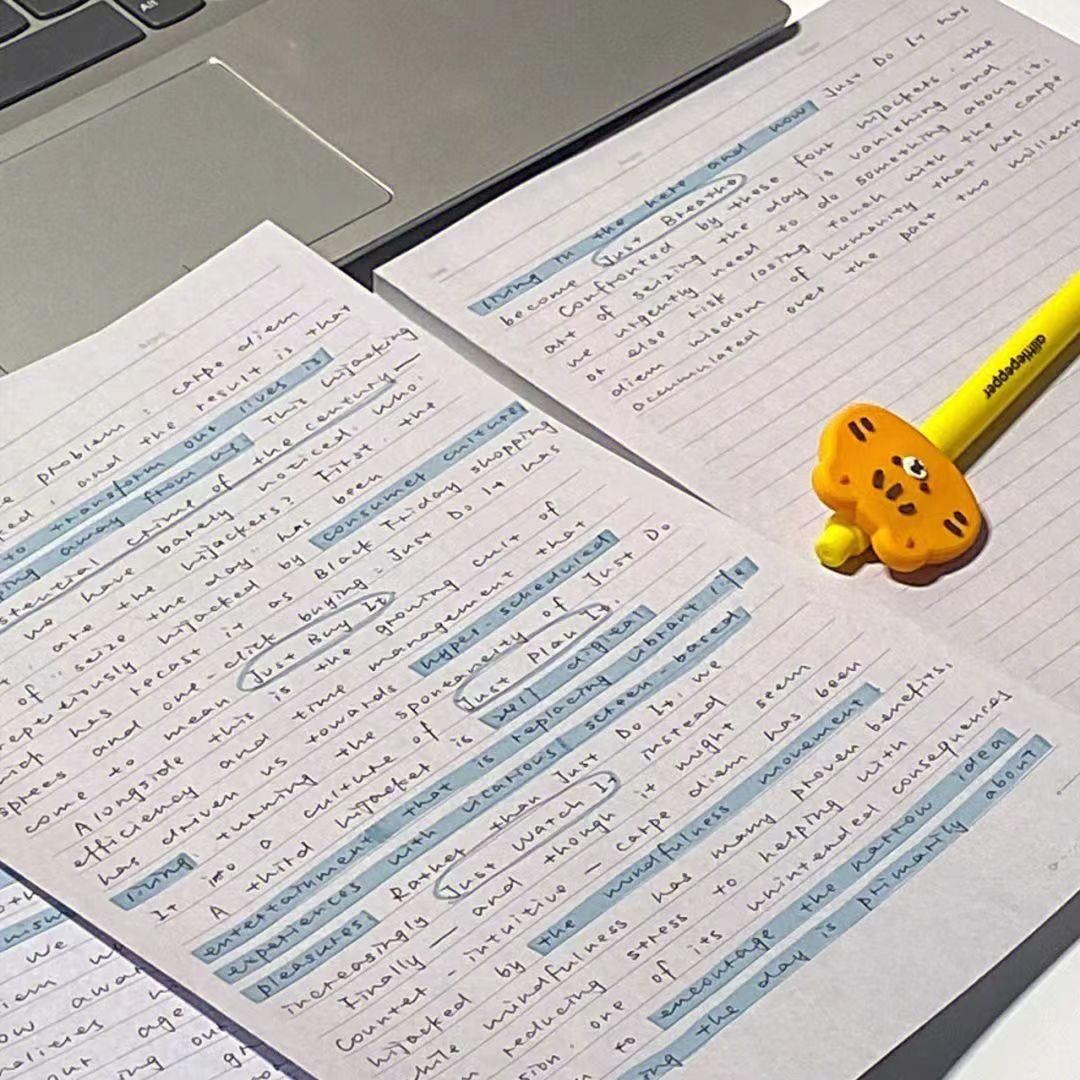 Alt
problem : carpe diem
and the result is that
to transform our lives is
away from us This hijacking
crime of the century —
we have barely noticed. Who
are the hijackers? First
of 'seize the day' has been the
hijacked by consumer culture
has recast it as Black Friday shopping
sprees and one click buying : Just Do It has
come to mean Just Buy It
Alongside this is the growing cult of
efficiency and time management that
has driven us towards hyper-scheduled
living turning the spontaneity of Just Do
It into a culture of Just Plan It.
A third hijacker is digital
entertainment that is replacing vibrant life
experiences with vicarious screen-based
pleasures Rather than Just Do It, we
increasingly Just Watch It instead
Finally — and though it might seem
counter-intuitive — carpe diem has been
hijacked by the mindfulness movement
mindfulness has many proven benefits,
reducing stress to helping with
one of its unintended consequences
to encourage the narrow idea
the day is primarily about
living in the here and now Just Do It has
become Just Breathe
Confronted by these four hijackers, the
art of seizing the day is vanishing and
we urgently need to do something about it,
or else risk losing touch with the carpe
diem wisdom of humanity that has
accumulated over the past two
alittlepepper
we